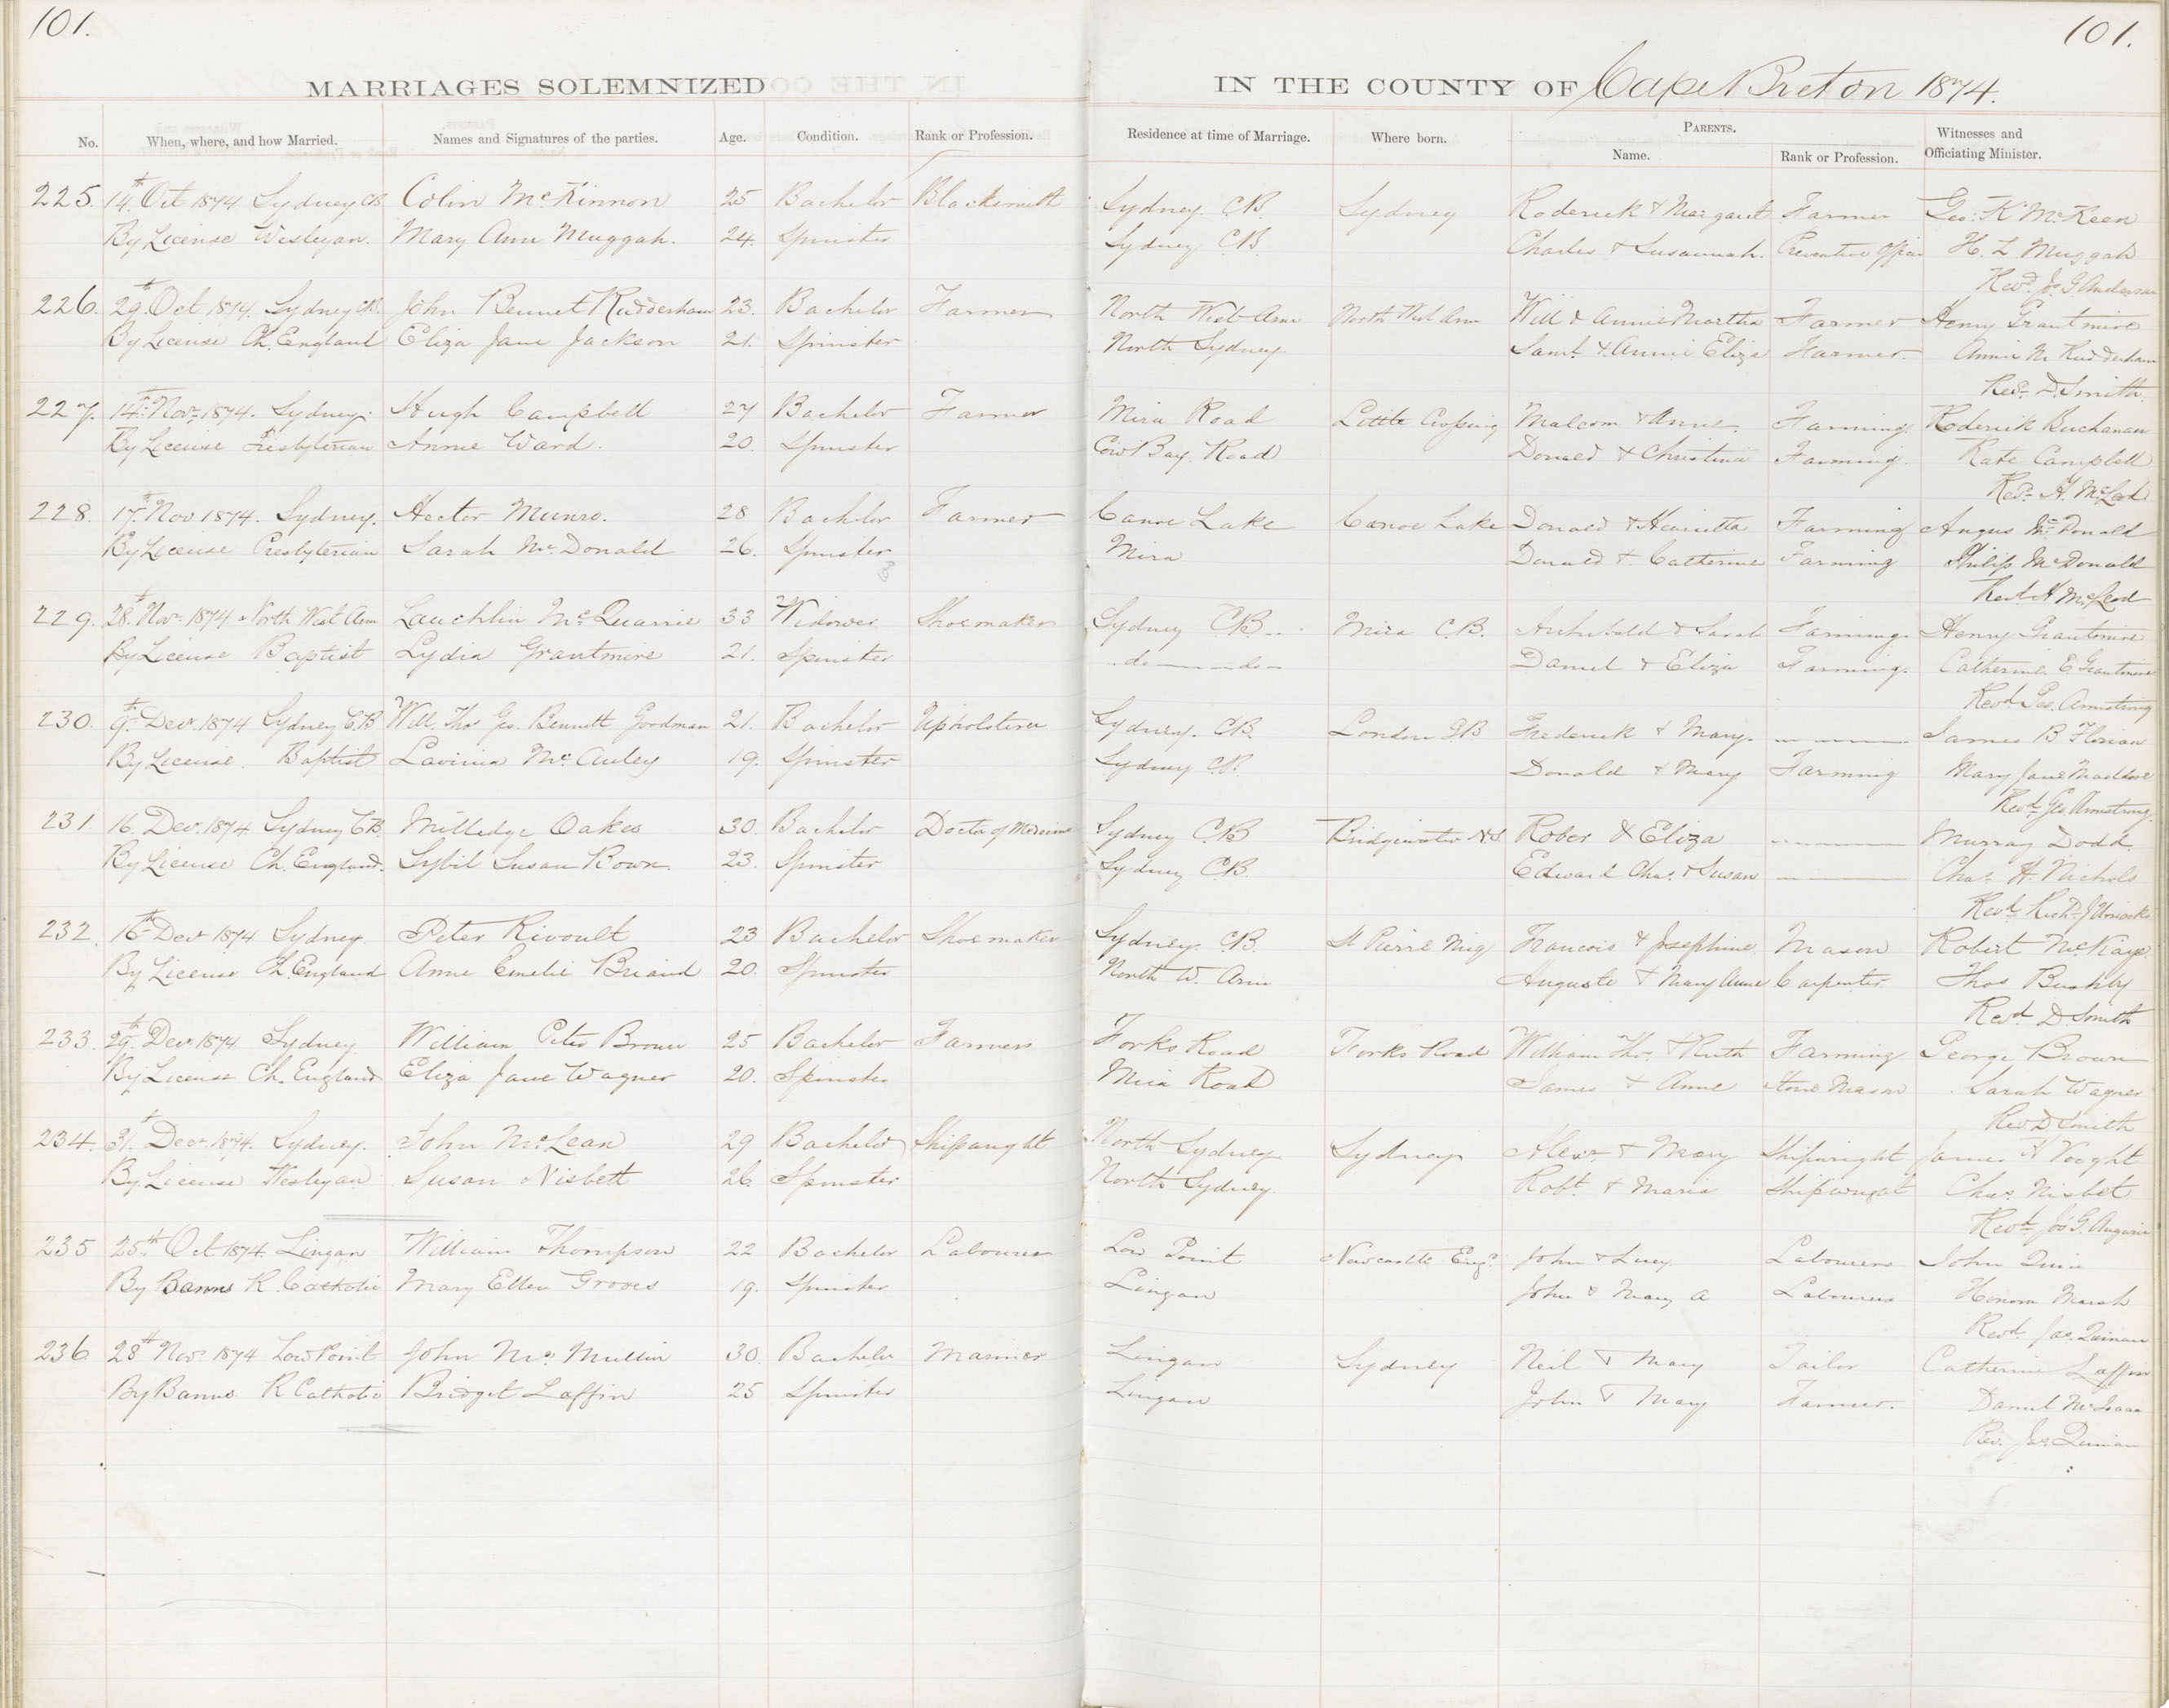 101.
101.
MARRIAGES SOLEMNIZED IN THE COUNTY OF Cape Breton 1874.
No. When, where, and how Married. Names and Signatures of the parties. Age. Condition. Rank or Profession. Residence at time of Marriage. Where born. PARENTS. Name. Rank or Profession. Witnesses and Officiating Minister.
225. 14th Oct 1874 Sydney CB Colin McKinnon 25 Bachelor Blacksmith Sydney. CB. Sydney Roderick & Margaret Farmer Geo: K McKeen
By License Wesleyan. Mary Ann Muggah. 24. Spinster Sydney CB. Charles & Susannah. Preventive Officer H. L. Muggah
Revd. Jos. G Anderson
226. 29th Oct 1874. Sydney CB. John Bennet Rudderham 23. Bachelor Farmer North West Arm North West Arm Will & Annie Martha Farmer Henry Grantmire
By License Ch. England Eliza Jane Jackson 21. Spinster North Sydney Saml. & Annie Eliza Farmer. Annie M Rudderham
Revd. D. Smith.
227. 14th Novr 1874. Sydney. Hugh Campbell 27 Bachelor Farmer Mira Road Little Crossing Malcom & Anne. Farming. Roderick Buchanan
By License Presbyterian Annie Ward. 20. Spinster Cow Bay Road Donald & Christina Farming. Kate Campbell
Revd. H. McLeod
228. 17th Nov 1874. Sydney. Hector Munro. 28 Bachelor Farmer Canoe Lake Canoe Lake Donald & Henrietta Farming Angus McDonald
By License Presbyterian Sarah McDonald 26. Spinster Mira Donald & Catherine Farming Philip McDonald
Revd. H McLeod
229. 28th Novr 1874 North West Arm Lauchlin McQuarrie 33 Widower Shoemaker Sydney CB Mira C.B. Archibald & Sarah Farming. Henry Grantmire
By License Baptist Lydia Grantmire 21. Spinster do do Daniel & Eliza Farming. Catherine E. Grantmire
Revd. Geo. Armstrong
230. 9th Decr. 1874 Sydney CB Will. Thos Geo. Bennett Goodman 21. Bachelor Upholsterer Sydney. CB. London GB Frederick & Mary. James B Florian
By License. Baptist Lavinia McAuley 19. Spinster Sydney CB. Donald & Mary Farming Mary Jane
Revd. Geo. Armstrong.
231. 16. Decr. 1874 Sydney CB. Milledge Oakes 30. Bachelor Doctor of Medicine Sydney CB Bridgewater N.S Rober & Eliza Murray Dodd.
By License Ch. England. Sybil Susan Bown. 23. Spinster Sydney CB. Edward Chas. & Susan Chas. H. Nichols
Revd. Richd. J Uniacke
232. 16th Decr 1874 Sydney Peter Rivoult 23 Bachelor Shoemaker Sydney. CB. St Pierre Miq Francois & Josephine. Mason Robert McKay.
By License Ch. England Anne Emelie Briand 20. Spinster North W. Arm Auguste & Mary Anne Carpenter Thos Bushby
Revd. D. Smith
233. 29th Decr. 1874 Sydney William Peter Brown 25 Bachelor Farmer Forks Road Forks Road William Thos. & Ruth Farming George Brown
By License Ch. England Eliza Jane Wagner 20. Spinster Mira Road James & Anne Stone Mason Sarah Wagner
Rev D Smith
234. 31st Decr. 1874. Sydney. John McLean 29 Bachelor Shipwright North Sydney Sydney Alexr & Mary Shipwright James H Voght
By License Wesleyan Susan Nisbett 26. Spinster North Sydney. Robt. & Maria Shipwright Chas. Nisbet
Revd. Jos G.
235 25th Oct 1874. Lingan William Thompson 22 Bachelor Labourer Low Point Newcastle Engd. John & Lucy. Labourer John Quin
By Banns R. Catholic Mary Ellen Groves 19. Spinster Lingan John & Mary A Labourer Honora Marsh
Revd. Jas. Quinan
236. 28th Novr 1874 Low Point John McMullin 30. Bachelor Mariner Lingan Sydney Neil & Mary Tailor Catherine Laffin
By Banns R Catholic Bridget Laffin 25 Spinster Lingan John & Mary Farmer. Daniel McIsaac
Rev. Jas. Quinan